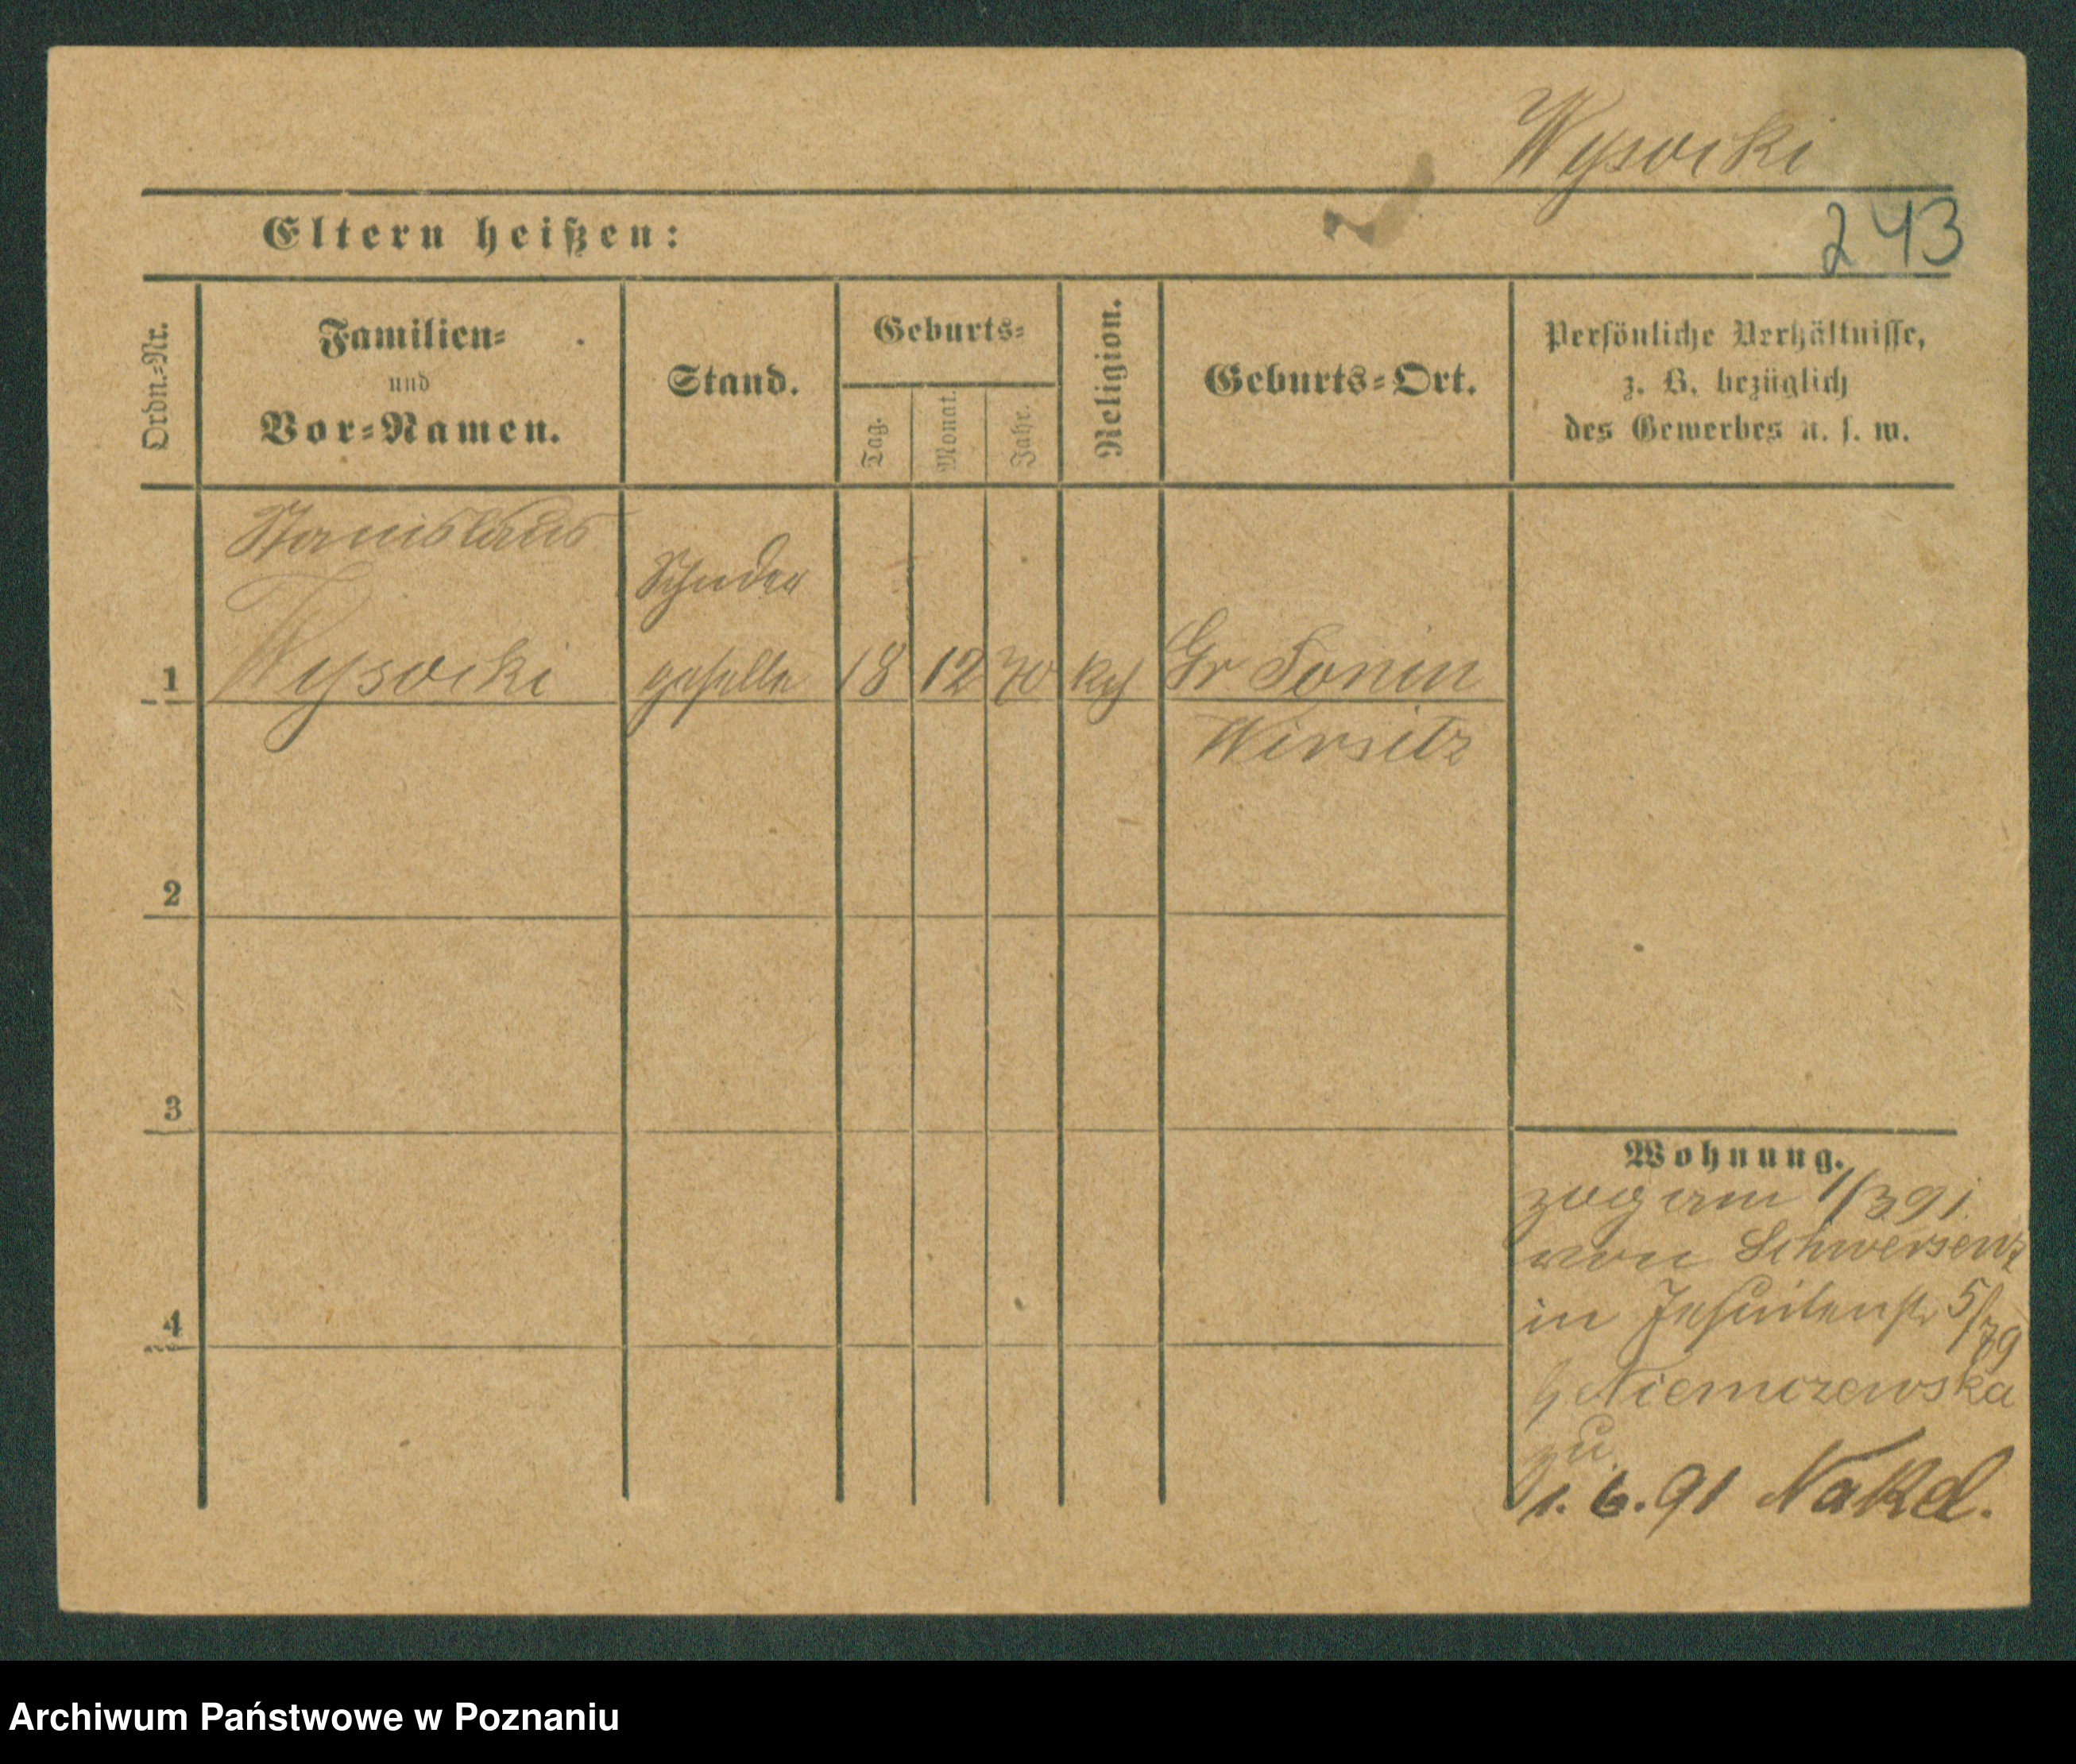 Wysocki
243
Eltern heißen:
Ordn.=Nr.
Familien=
und
Vor=Namen.
Stand.
Geburts=
Tag.
Monat.
Jahr.
Religion.
Geburts=Ort.
Persönliche Verhältnisse,
z. B. bezüglich
des Gewerbes u. s. w.
Stanislaus
Wysocki
geselle
1
18
12
70
kath
Gr Tonin
Wirsitz
2
3
4
Wohnung.
zog am 1/3 91.
von Schwersenz
in Jesuitenstr 5/79
b Niemczewska
zu.
1. 6. 91 Nakel.
Archiwum Państwowe w Poznaniu